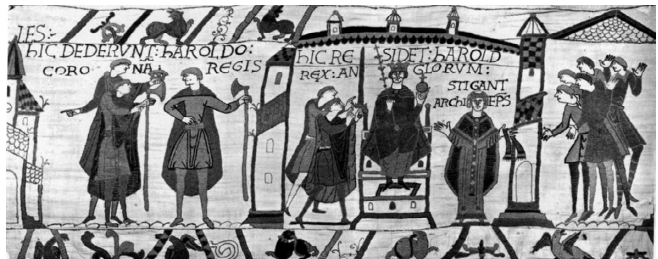 IES:
hIC DEDERVNT: hAROLDO:
CORONA: REGIS
hIC RE SIDET: hAROLD
REX: AN GLORVM:
STIGANT
ARChI EPS